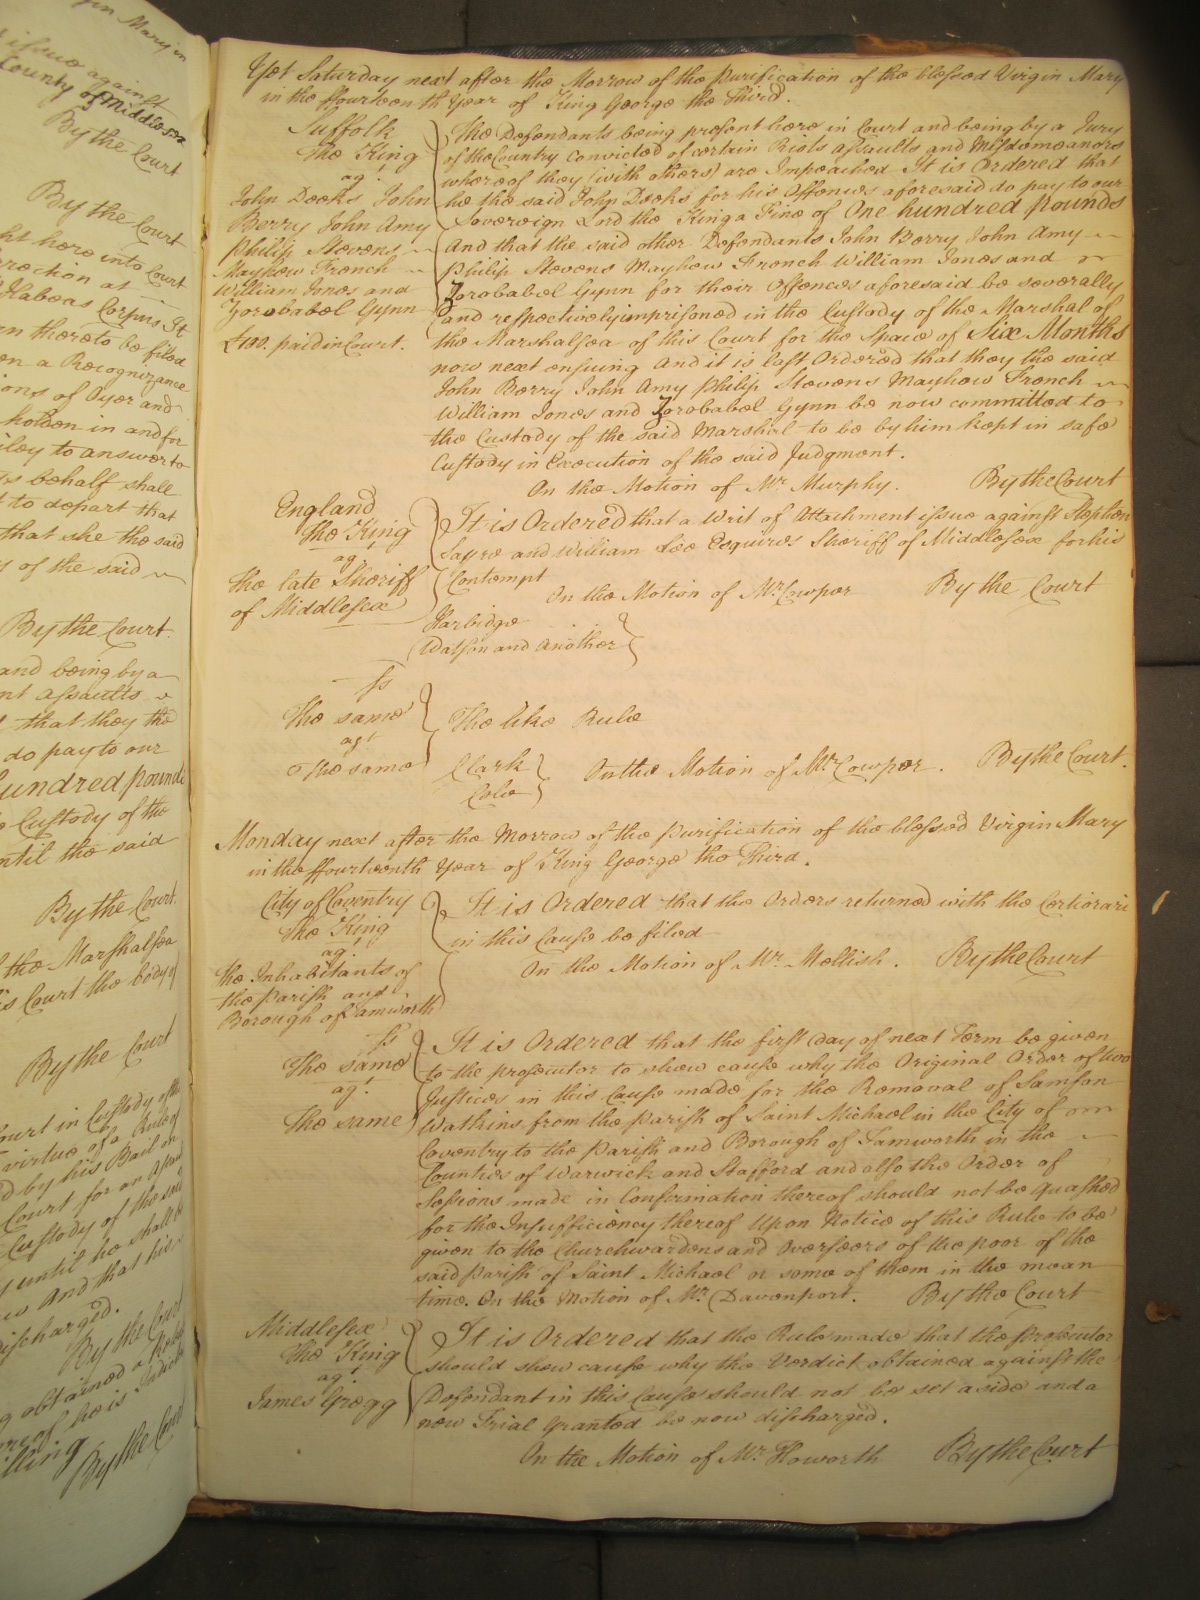 gin Mary in
issue against
County of Middlesex
By the Court
By the Court
ht here into Court
rrection at
Habeas Corpus It
n thereto be filed
en a Recognizance
ions of Oyer and
holden in and for
iley to answer to
s behalf shall
t to depart that
that she the said
y of the said
By the Court
and being by a
nt assaults
that they the
do pay to our
undred pounds
Custody of the
until the said
By the Court
the Marshalsea
is Court the body of
By the Court
Court in Custody of the
virtue of a Rule of
d by his Bail in
Custody of the said
until he shall be
And that his
discharged.
By the Court
obtained a Rule
By the Court
Yet Saturday next after the Morrow of the Purification of the blessed Virgin Mary
in the ffourteenth Year of King George the Third.
Suffolk
The King
agt
John Deeks John
Berry John Amy
Philip Stevens
Mayhew French
William Jones and
Zorobabel Gynn
£100. paid in Court.
The Defendants being present here in Court and being by a Jury
of the Country convicted of certain Riots assaults and Misdemeanors
whereof they (with others) are Impeached It is Ordered that
he the said John Deeks for his Offences aforesaid do pay to our
Sovereign Lord the King a Fine of One hundred pounds
And that the said other Defendants John Berry John Amy
Philip Stevens Mayhew French William Jones and
Zorobabel Gynn for their Offences aforesaid be severally
and respectively imprisoned in the Custody of the Marshal of
the Marshalsea of this Court for the Space of Six Months
now next ensuing And it is last Ordered that they the said
John Berry John Amy Philip Stevens Mayhew French
William Jones and Zorobabel Gynn be now committed to
the Custody of the said Marshal to be by him kept in safe
Custody in Execution of the said Judgment.
On the Motion of Mr. Murphy. By the Court
England
The King
agt
the late Sheriff
of Middlesex
It is Ordered that a Writ of Attachment issue against Stephen
Sayre and William Lee Esquires Sheriff of Middlesex for his
Contempt
On the Motion of Mr. Cowper By the Court
Harbidge
Watson and Another
ss
The same
agt
The same
The like Rule
Clark
Cole
On the Motion of Mr. Cowper. By the Court.
Monday next after the Morrow of the Purification of the blessed Virgin Mary
in the ffourteenth Year of King George the Third.
City of Coventry
The King
agt.
the Inhabitants of
the Parish and
Borough of Tamworth
It is Ordered that the Orders returned with the Certiorari
in this Cause be filed
On the Motion of Mr. Mellish. By the Court
ss
The same
agt.
The same
It is Ordered that the first Day of next Term be given
to the prosecutor to show cause why the Original Order of two
Justices in this Cause made for the Removal of Samson
Watkins from the Parish of Saint Michael in the City of
Coventry to the Parish and Borough of Tamworth in the
Counties of Warwick and Stafford and also the Order of
Sessions made in Confirmation thereof should not be quashed
for the Insufficiency thereof Upon Notice of this Rule to be
given to the Churchwardens and Overseers of the poor of the
said Parish of Saint Michael or some of them in the mean
time. On the Motion of Mr. Davenport. By the Court
Middlesex
The King
agt.
James Gregg
It is Ordered that the Rule made that the prosecutor
should shew cause why the Verdict obtained against the
Defendant in this Cause should not be set aside and a
new Trial Granted be now discharged.
On the Motion of Mr. Howorth By the Court